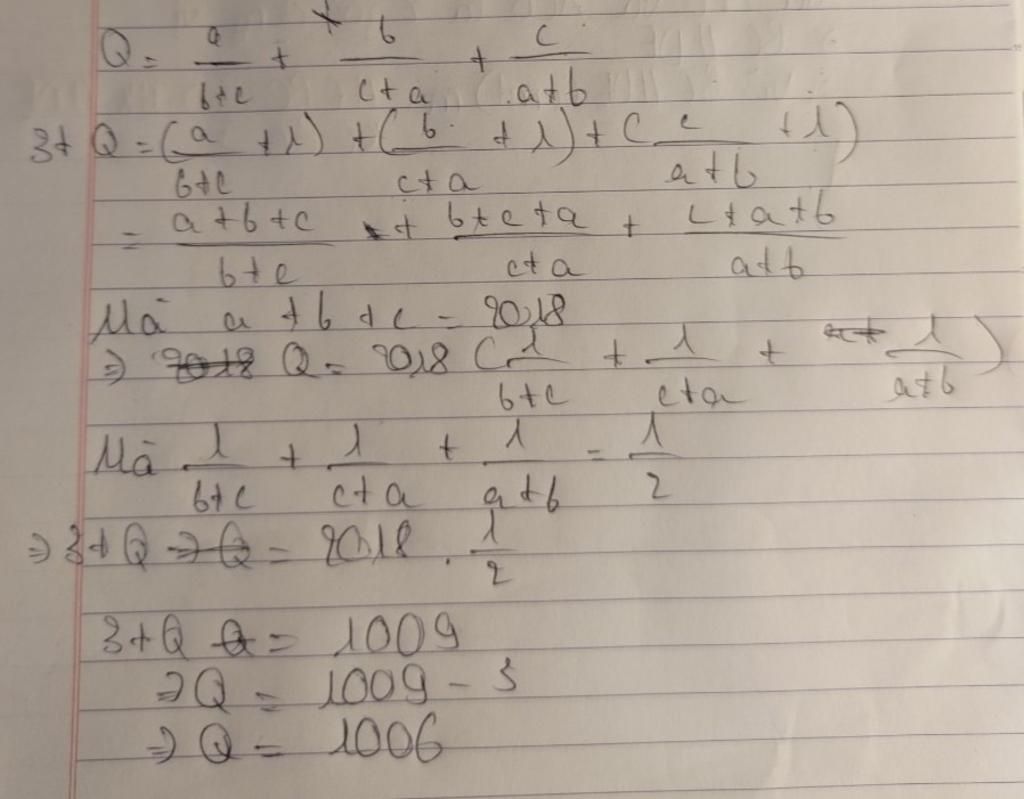 Q = a/(b+c) + b/(c+a) + c/(a+b)
3+ Q = (a/(b+c) + 1) + (b/(c+a) + 1) + (c/(a+b) + 1)
= (a+b+c)/(b+c) + (b+c+a)/(c+a) + (c+a+b)/(a+b)
Mà a + b + c = 2018
⇒ Q = 2018 (1/(b+c) + 1/(c+a) + 1/(a+b))
Mà 1/(b+c) + 1/(c+a) + 1/(a+b) = 1/2
⇒ 3+Q = 2018 . 1/2
3+Q = 1009
⇒ Q = 1009 - 3
⇒ Q = 1006